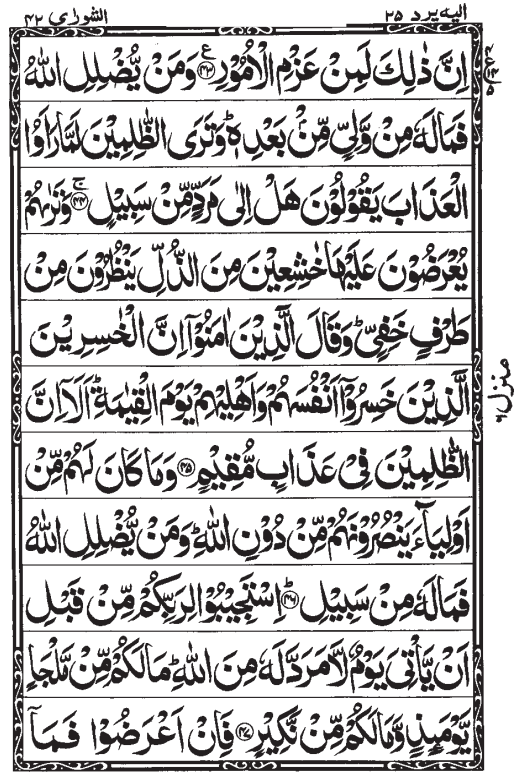 الیه یرد ۲۵
الشورٰی ۴۲
اِنَّ ذٰلِكَ لَمِنْ عَزْمِ الْاُمُوْرِ ﴿۴۳﴾ ع وَمَنْ يُّضْلِلِ اللّٰهُ
فَمَا لَهٗ مِنْ وَّلِيٍّ مِّنْ بَعْدِهٖ ؕ وَتَرَى الظّٰلِمِيْنَ لَمَّا رَاَوُا
الْعَذَابَ يَقُوْلُوْنَ هَلْ اِلٰى مَرَدٍّ مِّنْ سَبِيْلٍ ﴿۴۴﴾ ج وَتَرٰىهُمْ
يُعْرَضُوْنَ عَلَيْهَا خٰشِعِيْنَ مِنَ الذُّلِّ يَنْظُرُوْنَ مِنْ
طَرْفٍ خَفِيٍّ ؕ وَقَالَ الَّذِيْنَ اٰمَنُوْۤا اِنَّ الْخٰسِرِيْنَ
الَّذِيْنَ خَسِرُوْۤا اَنْفُسَهُمْ وَاَهْلِيْهِمْ يَوْمَ الْقِيٰمَةِ ؕ اَلَاۤ اِنَّ
الظّٰلِمِيْنَ فِيْ عَذَابٍ مُّقِيْمٍ ﴿۴۵﴾ وَمَا كَانَ لَهُمْ مِّنْ
اَوْلِيَآءَ يَنْصُرُوْنَهُمْ مِّنْ دُوْنِ اللّٰهِ ؕ وَمَنْ يُّضْلِلِ اللّٰهُ
فَمَا لَهٗ مِنْ سَبِيْلٍ ﴿۴۶﴾ ؕ اِسْتَجِيْبُوْا لِرَبِّكُمْ مِّنْ قَبْلِ
اَنْ يَّاْتِيَ يَوْمٌ لَّا مَرَدَّ لَهٗ مِنَ اللّٰهِ ؕ مَا لَكُمْ مِّنْ مَّلْجَاٍ
يَّوْمَئِذٍ وَّمَا لَكُمْ مِّنْ نَّكِيْرٍ ﴿۴۷﴾ فَاِنْ اَعْرَضُوْا فَمَاۤ
منزل ۶